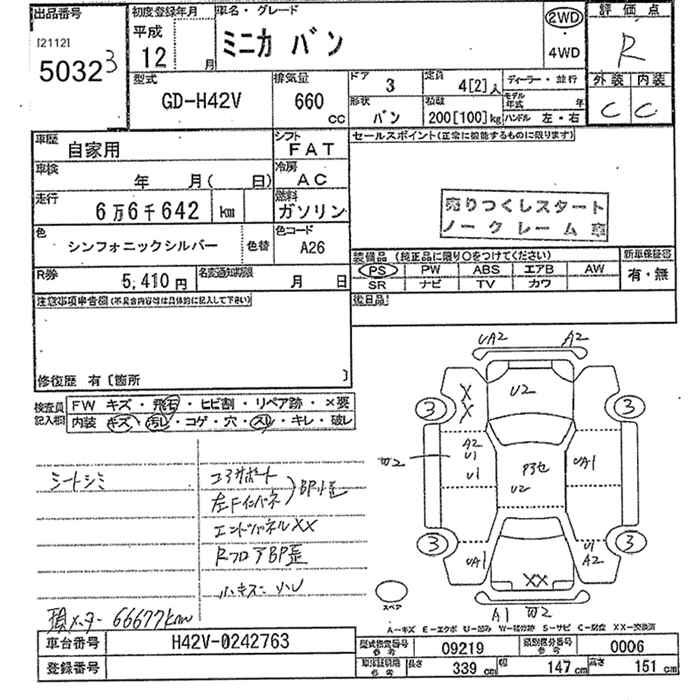 出品番号
[2112]
5032 3
初度登録年月
平成
12 月
車名・グレード
ミニカ バン
2WD
・
4WD
評価点
R
外装 内装
C C
型式
GD-H42V
排気量
660 CC
ドア 3
定員 4[2]人
形状 バン
積載 200[100]kg
ディーラー・並行
モデル年式 年
ハンドル 左・右
車歴 自家用
シフト FAT
車検 年 月( 日)
冷房 AC
走行 6万6千642 km
燃料 ガソリン
色 シンフォニックシルバー 色替
色コード A26
R券 5,410円
名変通知期限 月 日
セールスポイント(正常に機能するものに限ります)
売りつくしスタート
ノークレーム
装備品 (純正品に限り○をつけてください)
PS PW ABS エアB AW
SR ナビ TV カワ
新車保証書
有・無
後日品
注意事項申告欄(不具合内容等は具体的に記入して下さい)
修復歴 有〔箇所 〕
検査員記入欄
FW キズ・飛石・ヒビ割・リペア跡・×要
内装 キズ・汚レ・コゲ・穴・スレ・キレ・破レ
シートシミ
コアサポート
左Fインパネ
BP小歪
エンドパネルXX
RフロアBP歪
小キズ・小U
現メーター 66677km
UA2 A2
X
X
U2
3 3
A2
U1
U1
U2
UA1
3 3
UA1
U1
A2
XX
A1 W2
スペア
A-キズ E-エクボ U-凹み W-補修跡 S-サビ C-腐食 XX-交換済
車台番号 H42V-0242763
登録番号
型式指定番号 参考 09219
類別区分番号 参考 0006
車体諸明細 参考 長さ 339cm 幅 147cm 高さ 151cm